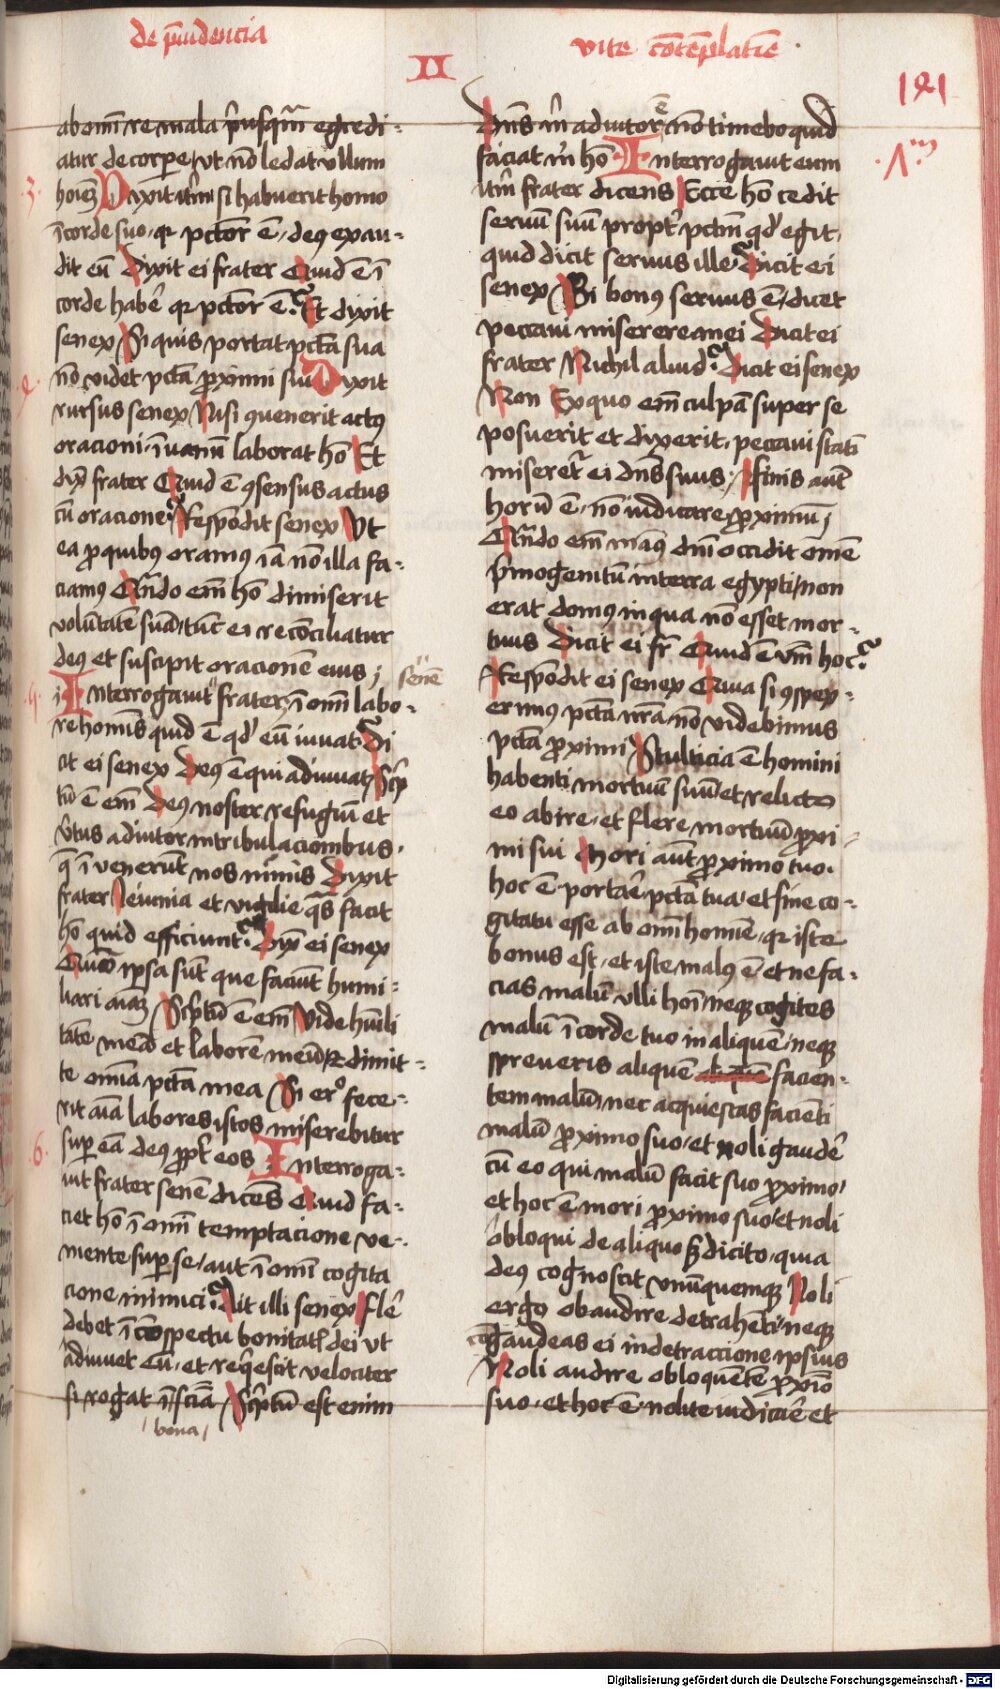 de prudencia
II
vite cōtēplatīe
191
ab om̄i re mala priusq̄m egredi-
atur de corpere, ut nō ledat vllum
hoīez Dixit itm̄ si habuerit homo
ī corde suo, qr pctor ē, deus exau-
dit eū Dixit ei frater Quid ē ī
corde habē qr pctor ē. Et dixit
senex Si quis portat pctā sua
nō videt pctā proximi sui Dixit
rursus senex Nisi ꝯuenerit actus
oracioni, ī uanū laborat hō Et
dix̄ frater Quid ē ꝯsensus actus
cū oracione Respōdit senex Vt
ea pro quibus oramus iā nō illa fa-
ciamus Qn̄do em̄ hō dimiserit
volūtatē suā, tūc ei reconciliatur
deus et suscipit oracionē eius
Interrogauit frater, ī om̄i labo-
senē
re hominis quid ē qd eū iuuat Di
cit ei senex Deus ē qui adiuuat, Scrip
tū ē em̄ Deus noster refugiū et
virtus adiutor in tribulacionibus,
q̄ īvenerūt nos nimis Dixit
frater Ieiunia et vigilie q̄s facit
hō quid efficiunt Dix̄ ei senex
ipsa sūt que faciūt humi-
liari aīaz Scriptū ē em̄ Vide hūili
tatē meā et laborē meū et dimit-
te om̄ia pctā mea Si ergo fece-
rit aīa labores istos miserebitur
super eā deus propt eos Interroga-
uit frater senē dicēs Quid fa-
ciet hō ī om̄i temptacione ve-
niente super se, aut ī om̄i cogita
cione inimici Ait illi senex Flē
debet ī cōspectu bonitatis dei vt
adiuuet eū, et reqescit velociter
si rogat ī sciā Scriptū est enim
bona
Dn̄s m̄ adiutor ē nō timebo quid
faciat m̄ hō Interrogauit eum
itm̄ frater dicens Ecce hō cedit
seruū suū propt pctm̄ qd egit,
quid dicit seruus ille Dicit ei
senex Si bonus seruus ē, dicet
peccaui miserere mei Dicit ei
frater Nichil aliud Dicit ei senex
Non Ex quo em̄ culpā super se
posuerit et dixerit, peccaui statī
miseret ei dn̄s suus, Finis aut
horū ē, nō iudicare proximū,
Qn̄do em̄ manus dn̄i occidit om̄e
prīmogenitū in terra egypti, non
erat domus in qua nō esset mor-
tuus Dicit ei fr̄ Quid ē v̄m hoc
Respōdit ei senex Quia si ꝯspex-
erimus pctā nr̄a nō videbimus
pctā proximi Stulticia ē homini
habenti mortuū suū et relicto
eo abire, et flere mortuū proxi
mi sui Mori aut proximo tuo
hoc ē portare pctā tua, et sine co-
gitatu esse ab om̄i homīe, qr iste
bonus est, et iste malus ē, et ne fa-
cias malū vlli hoī neque cogites
malū ī corde tuo in aliquē, neque
spreueris aliquē facien-
tem malū, nec acquiescas faciēti
malū proximo suo, et noli gaudē
cū eo qui malū facit suo proximo,
et hoc ē mori proximo suo, et noli
obloqui de aliquo sed dicito, quia
deus cognoscit vnūquemque Noli
ergo obaudire detrahēti, neque
cōgaudeas ei in detraccione ipsius
Noli audire obloquētē proxīo
suo, et hoc ē, nolite iudicare et
Digitalisierung gefördert durch die Deutsche Forschungsgemeinschaft - DFG